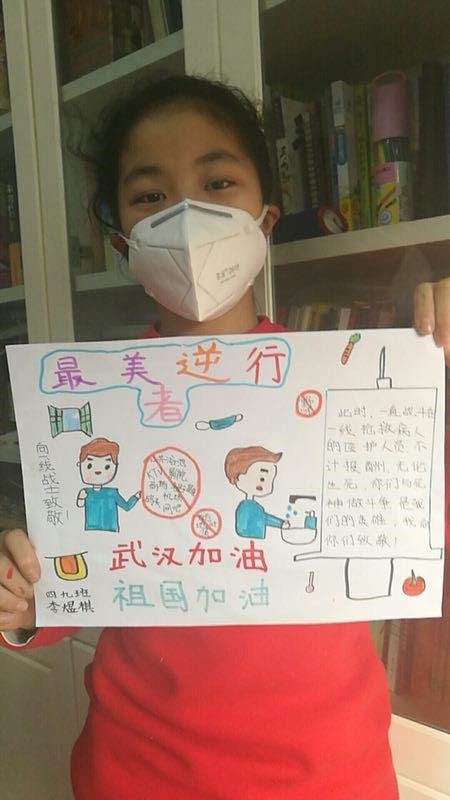 最美逆行
者
向一线战士致敬!
此时,一直战斗在
一线抢救病人
的医护人员,不
计报酬,无论
生死,你们与死
神做斗争是我
们的英雄,我向
你们致敬!
武汉加油
祖国加油
四九班
李煜祺